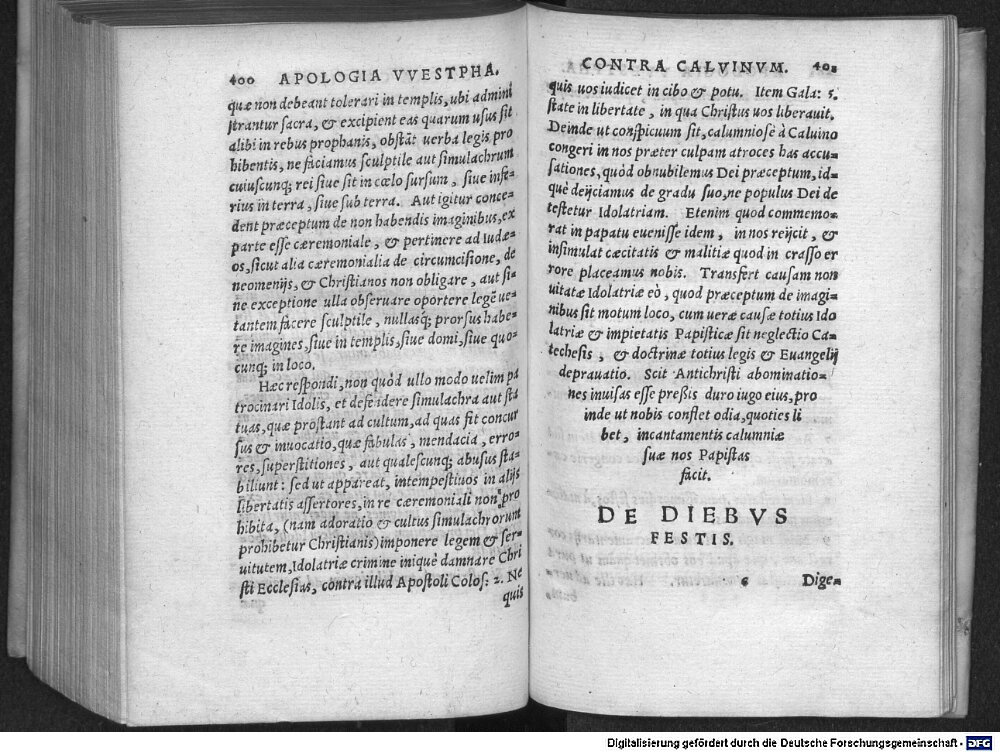 400 APOLOGIA VVESTPHA.
quæ non debeant tolerari in templis, ubi admini
strantur sacra, & excipient eas quarum usus sit
alibi in rebus prophanis, obstāt uerba legis pro
hibentis, ne faciamus sculptile aut simulachrum
cuiuscunq; rei siue sit in cœlo sursum, siue infe-
rius in terra, siue sub terra. Aut igitur conce-
dent præceptum de non habendis imaginibus, ex
parte esse cæremoniale, & pertinere ad Iudæ-
os, sicut alia cæremonialia de circumcisione, de
neomenijs, & Christianos non obligare, aut si-
ne exceptione ulla obseruare oportere legē ue-
tantem facere sculptile, nullasq; prorsus habe-
re imagines, siue in templis, siue domi, siue quo-
cunq; in loco.
Hæc respondi, non quòd ullo modo uelim pa
trocinari Idolis, et defēdere simulachra aut sta
tuas, quæ prostant ad cultum, ad quas fit concur
sus & inuocatio, quæ fabulas, mendacia, erro-
res, superstitiones, aut qualescunq; abusus sta-
biliunt: sed ut appareat, intempestiuos in alijs
libertatis assertores, in re cæremoniali non pro
hibita, (nam adoratio & cultus simulachrorum
prohibetur Christianis) imponere legem & ser-
uitutem, Idolatriæ crimine iniquè damnare Chri
sti Ecclesias, contra illud Apostoli Colos: 2. Ne
quis
CONTRA CALVINVM. 401
quis uos iudicet in cibo & potu. Item Gala: 5.
state in libertate, in qua Christus uos liberauit.
Deinde ut conspicuum sit, calumniosè à Caluino
congeri in nos præter culpam atroces has accu-
sationes, quòd obnubilemus Dei præceptum, id-
què deijciamus de gradu suo, ne populus Dei de
testetur Idolatriam. Etenim quod commemo-
rat in papatu euenisse idem, in nos reijcit, &
insimulat cæcitatis & malitiæ quod in crasso er
rore placeamus nobis. Transfert causam non
uitatæ Idolatriæ eò, quod præceptum de imagi-
nibus sit motum loco, cum ueræ causæ totius Ido
latriæ & impietatis Papisticæ sit neglectio Ca-
techesis, & doctrinæ totius legis & Euangelij
deprauatio. Scit Antichristi abominatio-
nes inuisas esse pressis duro iugo eius, pro
inde ut nobis conflet odia, quoties li
bet, incantamentis calumniæ
suæ nos Papistas
facit.
DE DIEBVS
FESTIS.
c Dige-
Digitalisierung gefördert durch die Deutsche Forschungsgemeinschaft - DFG